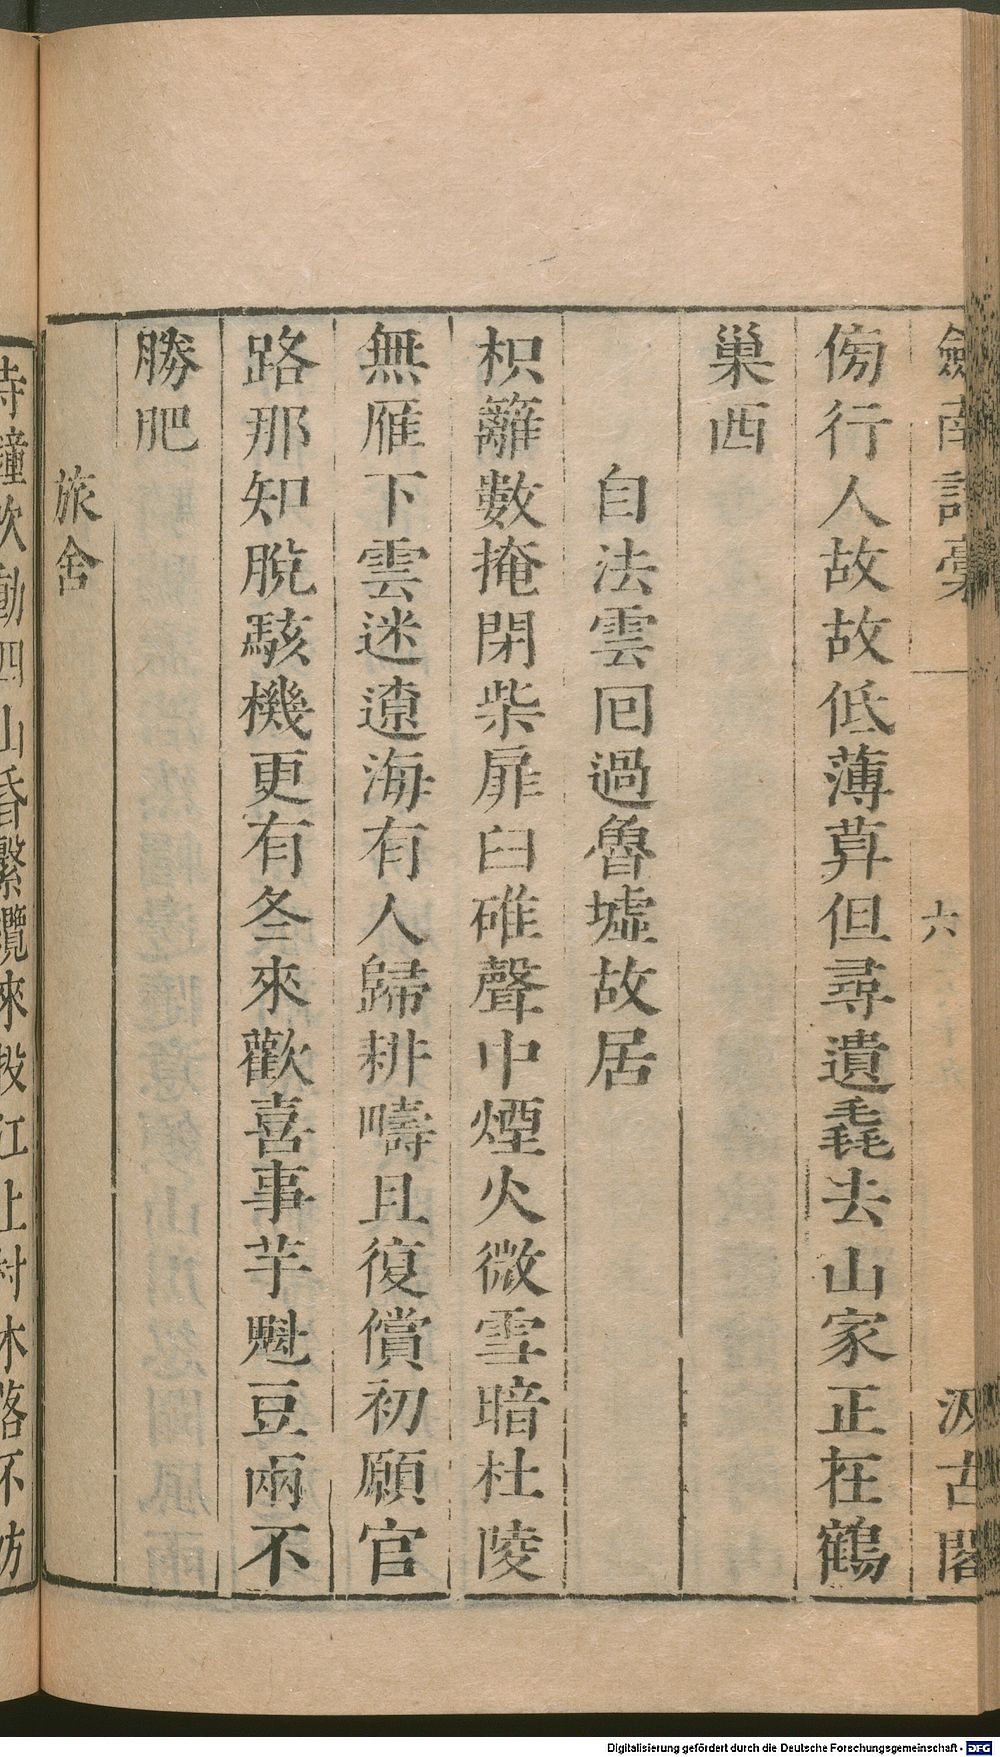 劔南詩稾
六
汲古閣
傍行人故故低薄莫但尋遺毳去山家正在鶴
巢西
自法雲回過魯墟故居
枳籬數掩閉柴扉臼碓聲中煙火微雪暗杜陵
無雁下雲迷遼海有人歸耕疇且復償初願官
路那知脫駭機更有冬來歡喜事芋魁豆兩不
勝肥
旅舍
時鐘吹動四山昏繫纜來投江上村木落不妨
Digitalisierung gefördert durch die Deutsche Forschungsgemeinschaft - DFG